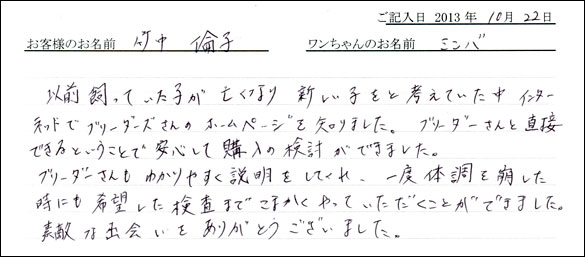 ご記入日 2013年 10月 22日
お客様のお名前 竹中 倫子 ワンちゃんのお名前 ミンバ
以前飼っていた子が亡くなり 新しい子をと考えていた中 インター
ネットでブリーダーズさんのホームページを知りました。 ブリーダーさんと直接
できるということで安心して購入の検討ができました。
ブリーダーさんもわかりやすく説明をしてくれ、一度体調を崩した
時にも希望した検査までこまかくやっていただくことができました。
素敵な出会いをありがとうございました。